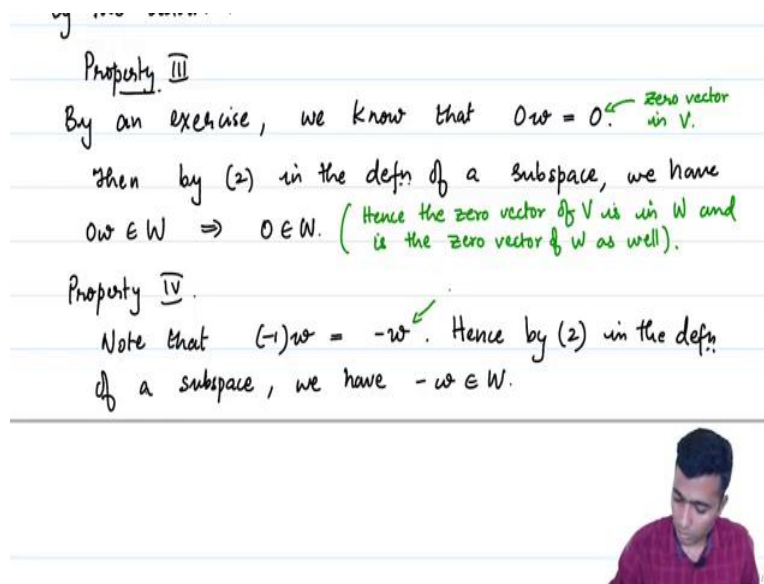 Property III
By an exercise, we know that 0w = 0. ← zero vector in V.
Then by (2) in the defn of a subspace, we have
0w ∈ W ⇒ 0 ∈ W. (Hence the zero vector of V is in W and
is the zero vector of W as well).
Property IV.
Note that (-1)w = -w. Hence by (2) in the defn.
of a subspace, we have -w ∈ W.